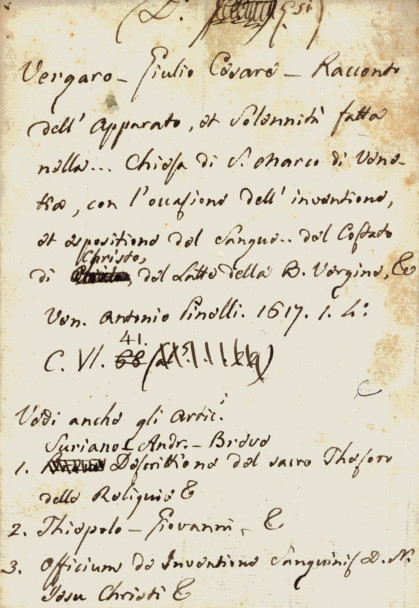 Vergaro - Giulio Cesare - Racconto
dell' Apparato, et Solennità fatta
nella... Chiesa di S. Marco di Vene-
tia, con l'occasione dell' inventione,
et espositione del Sangue.. del Costato
di Christo, del Latte della B. Vergine, &
Ven. Antonio Pinelli. 1617. 1. 4°.
C. VI. 41.
Vedi anche gli artic.i
Suriano Andr. - Breve
1. Descrittione del sacro Thesoro
delle Reliquie &
2. Thiepolo - Giovanni, &
3. Officium de Inventione Sanguinis D. N.
Jesu Christi &